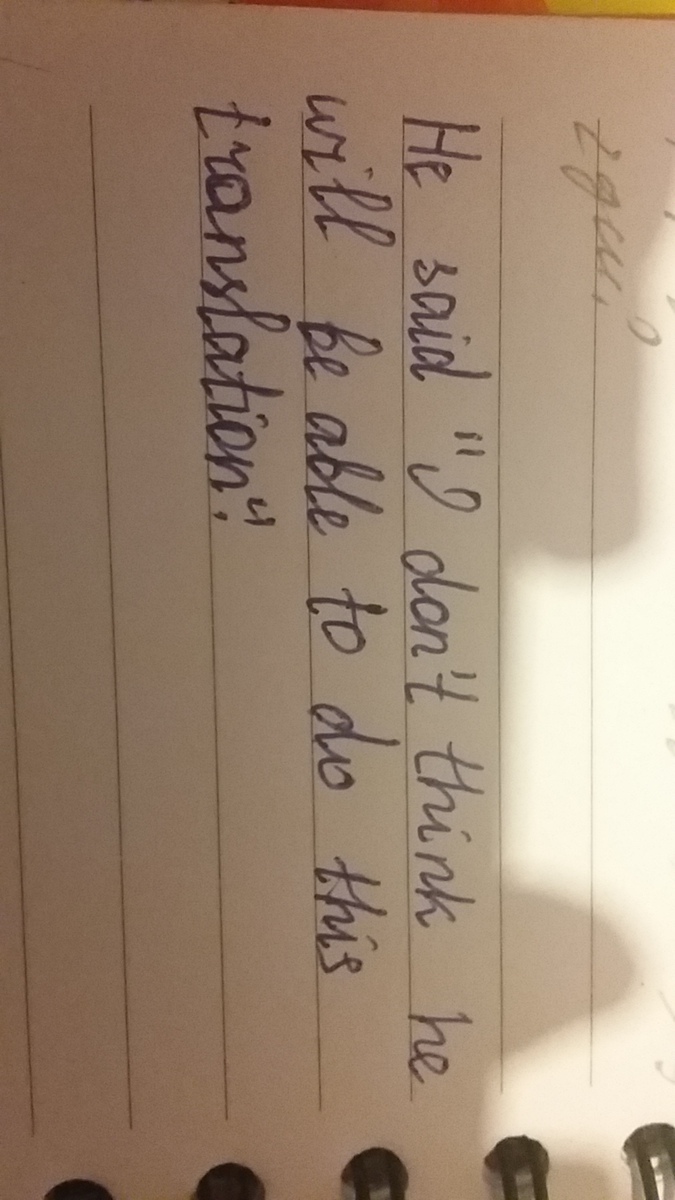 He said "I don't think he
will be able to do this
translation".